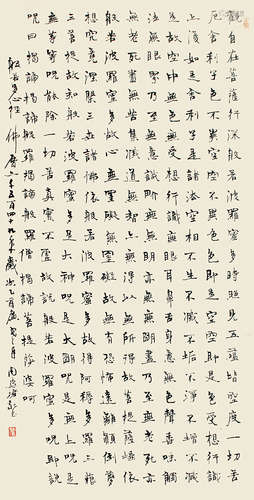 觀自在菩薩行深般若波羅蜜多時照見五蘊皆空度一切苦
厄舍利子色不異空空不異色色即是空空即是色受想行識
亦復如是舍利子是諸法空相不生不滅不垢不淨不增不減
是故空中無色無受想行識無眼耳鼻舌身意無色聲香味觸
法無眼界乃至無意識界無無明亦無無明盡乃至無老死亦
無老死盡無苦集滅道無智亦無得以無所得故菩提薩埵依
般若波羅蜜多故心無罣礙無罣礙故無有恐怖遠離顛倒夢
想究竟涅槃三世諸佛依般若波羅蜜多故得阿耨多羅三藐
三菩提故知般若波羅蜜多是大神呪是大明呪是無上呪是
無等等呪能除一切苦真實不虛故說般若波羅蜜多呪即說
呪曰揭諦揭諦般羅揭諦般羅僧揭諦菩提莎婆呵
般若多心經 佛曆二千五百四十九年歲次乙酉